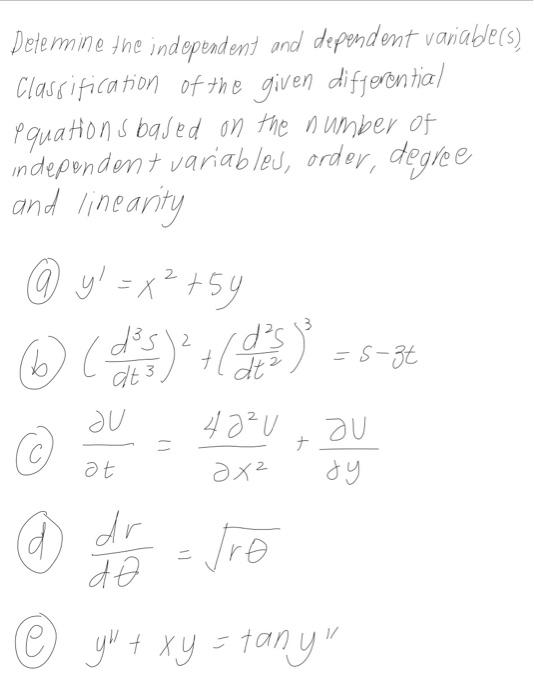 Determine the independent and dependent variable(s),
Classification of the given differential
equations based on the number of
independent variables, order, degree
and linearity
(a) y' = x² + 5y
(b) (d³s/dt³)² + (d²s/dt²)³ = s - 3t
(c) ∂U/∂t = 4∂²U/∂x² + ∂U/∂y
(d) dr/dθ = √rθ
(e) y'' + xy = tan y''